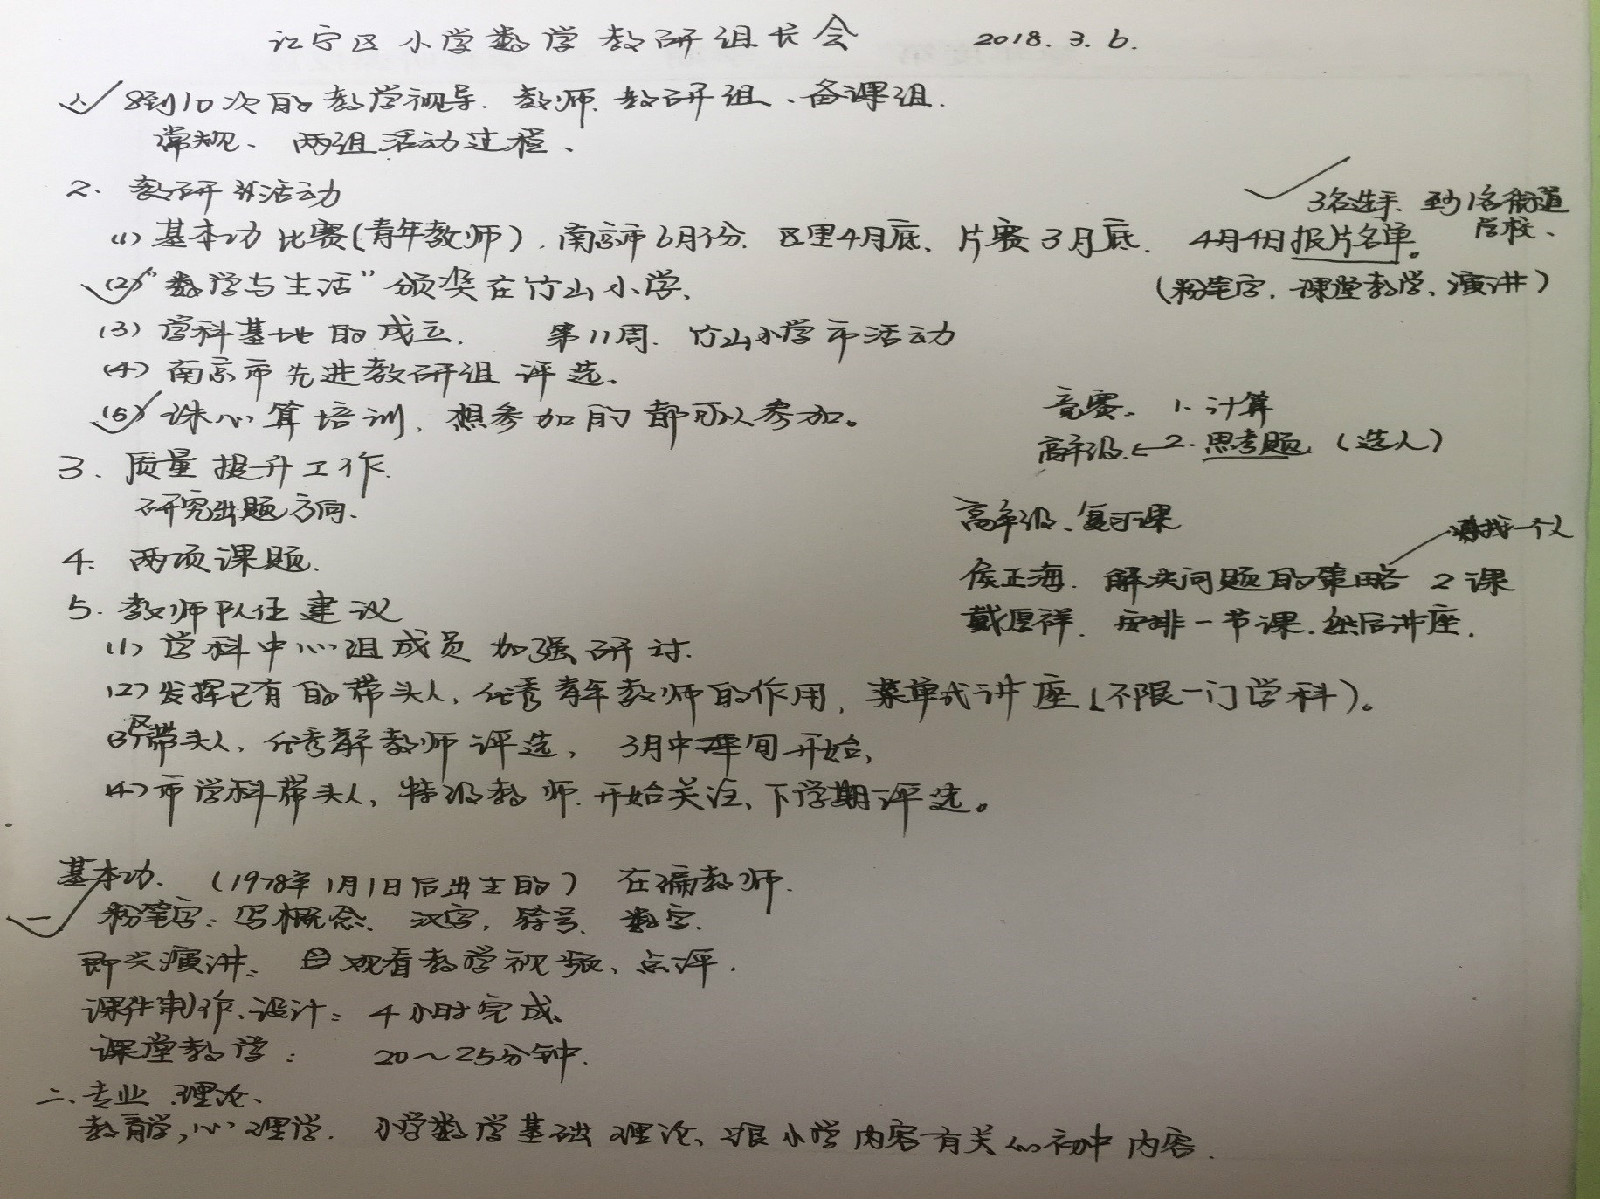 江宁区小学数学教研组长会 2018.3.6.
1. 8到10次的教学视导. 教师. 教研组、备课组.
常规、两组活动过程、
2. 教研活动
3名选手 到1名街道
学校、
(1) 基本功比赛(青年教师). 南京市6月份. 区里4月底、片赛3月底. 4月4日报片名单。
(2)“数学与生活”颁奖在竹山小学、
(粉笔字、课堂教学、演讲)
(3) 学科基地的成立. 第11周. 竹山小学市活动
(4) 南京市先进教研组评选、
(5) 珠心算培训、想参加的都可以参加。
竞赛。 1.计算
高年级 ← 2.思考题 (选人)
3. 质量提升工作.
研究出题方向、
高年级、复习课
一个人
4. 两项课题.
侯正海. 解决问题的策略 2课
5. 教师队伍建议
戴厚祥. 安排一节课.然后讲座.
(1) 学科中心组成员加强研讨.
(2) 发挥已有的带头人、优秀青年教师的作用, 菜单式讲座(不限一门学科)。
(3) 区带头人, 优秀青年教师评选, 3月中旬开始,
(4) 市学科带头人, 特级教师.开始关注、下学期评选。
基本功. (1978年1月1日后出生的) 在编教师.
一 粉笔字: 写概念. 汉字, 符号. 数字.
即兴演讲: 观看教学视频、点评.
课件制作、设计: 4小时完成、
课堂教学: 20~25分钟.
二、专业理论、
教育学, 心理学. 小学数学基础理论、跟小学内容有关的初中内容.